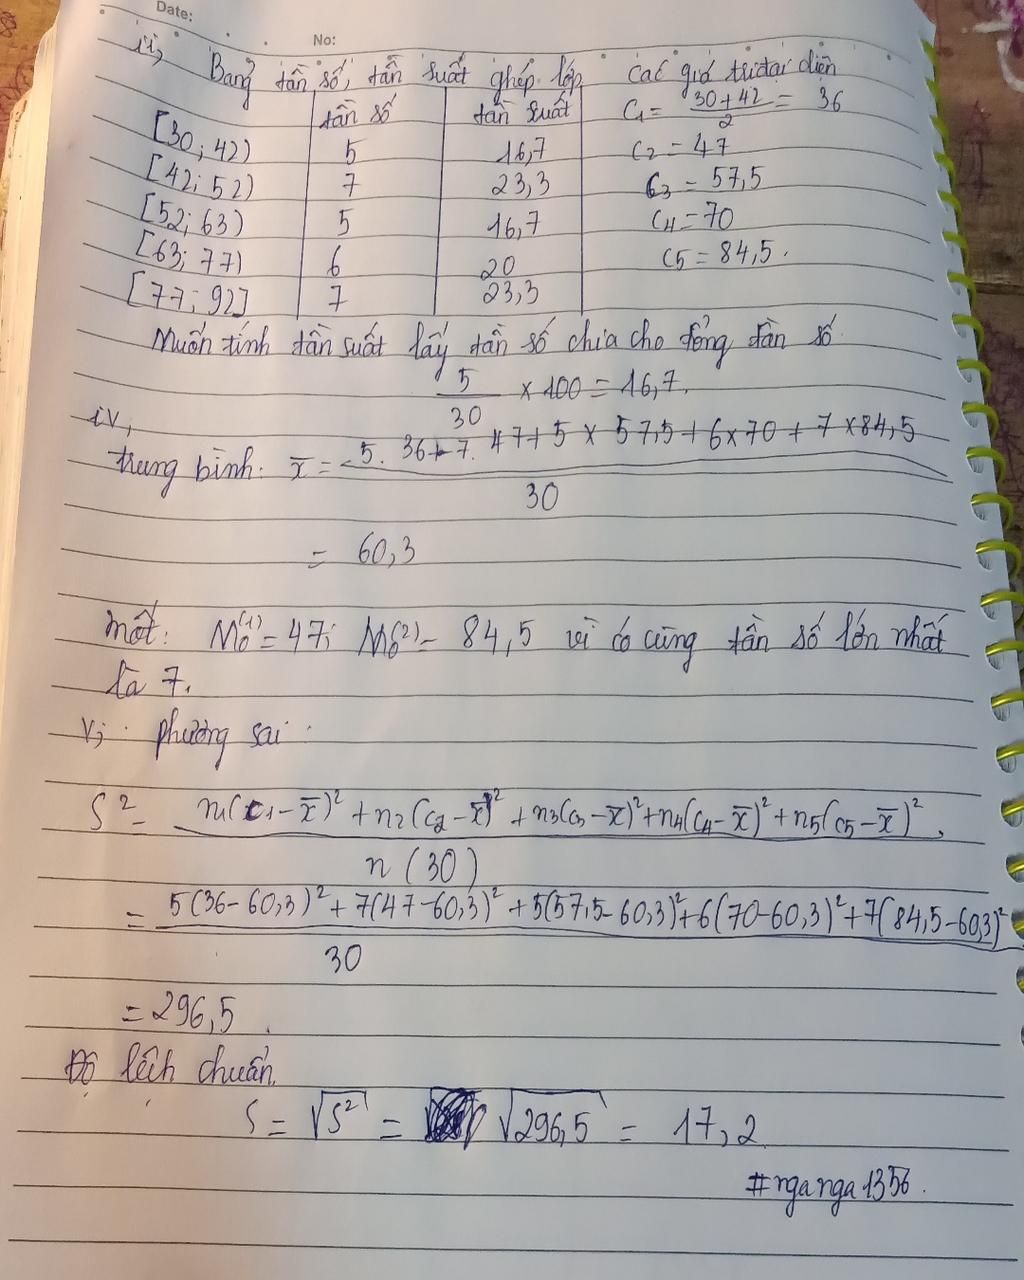 Date:
No:
ii, Bảng tần số, tần suất ghép lớp Các giá trị đại diện
tần số tần suất C1 = (30+42)/2 = 36
[30; 42) 5 16,7 C2 = 47
[42; 52) 7 23,3 C3 = 57,5
[52; 63) 5 16,7 C4 = 70
[63; 77) 6 20 C5 = 84,5.
[77; 92] 7 23,3
Muốn tính tần suất lấy tần số chia cho tổng tần số
5/30 × 100 = 16,7.
iv,
trung bình: x̄ = (5. 36 + 7. 47 + 5 × 57,5 + 6×70 + 7×84,5)/30
= 60,3
mốt: M₀⁽¹⁾ = 47; M₀⁽²⁾ = 84,5 vì có cùng tần số lớn nhất
là 7.
v; phương sai
S² = (n1(c1-x̄)² + n2(c2-x̄)² + n3(c3-x̄)² + n4(c4-x̄)² + n5(c5-x̄)²)/n(30)
= (5(36-60,3)² + 7(47-60,3)² + 5(57,5-60,3)² + 6(70-60,3)² + 7(84,5-60,3)²)/30
= 296,5.
Độ lệch chuẩn.
S = √S² = √296,5 = 17,2
#nganga1356.